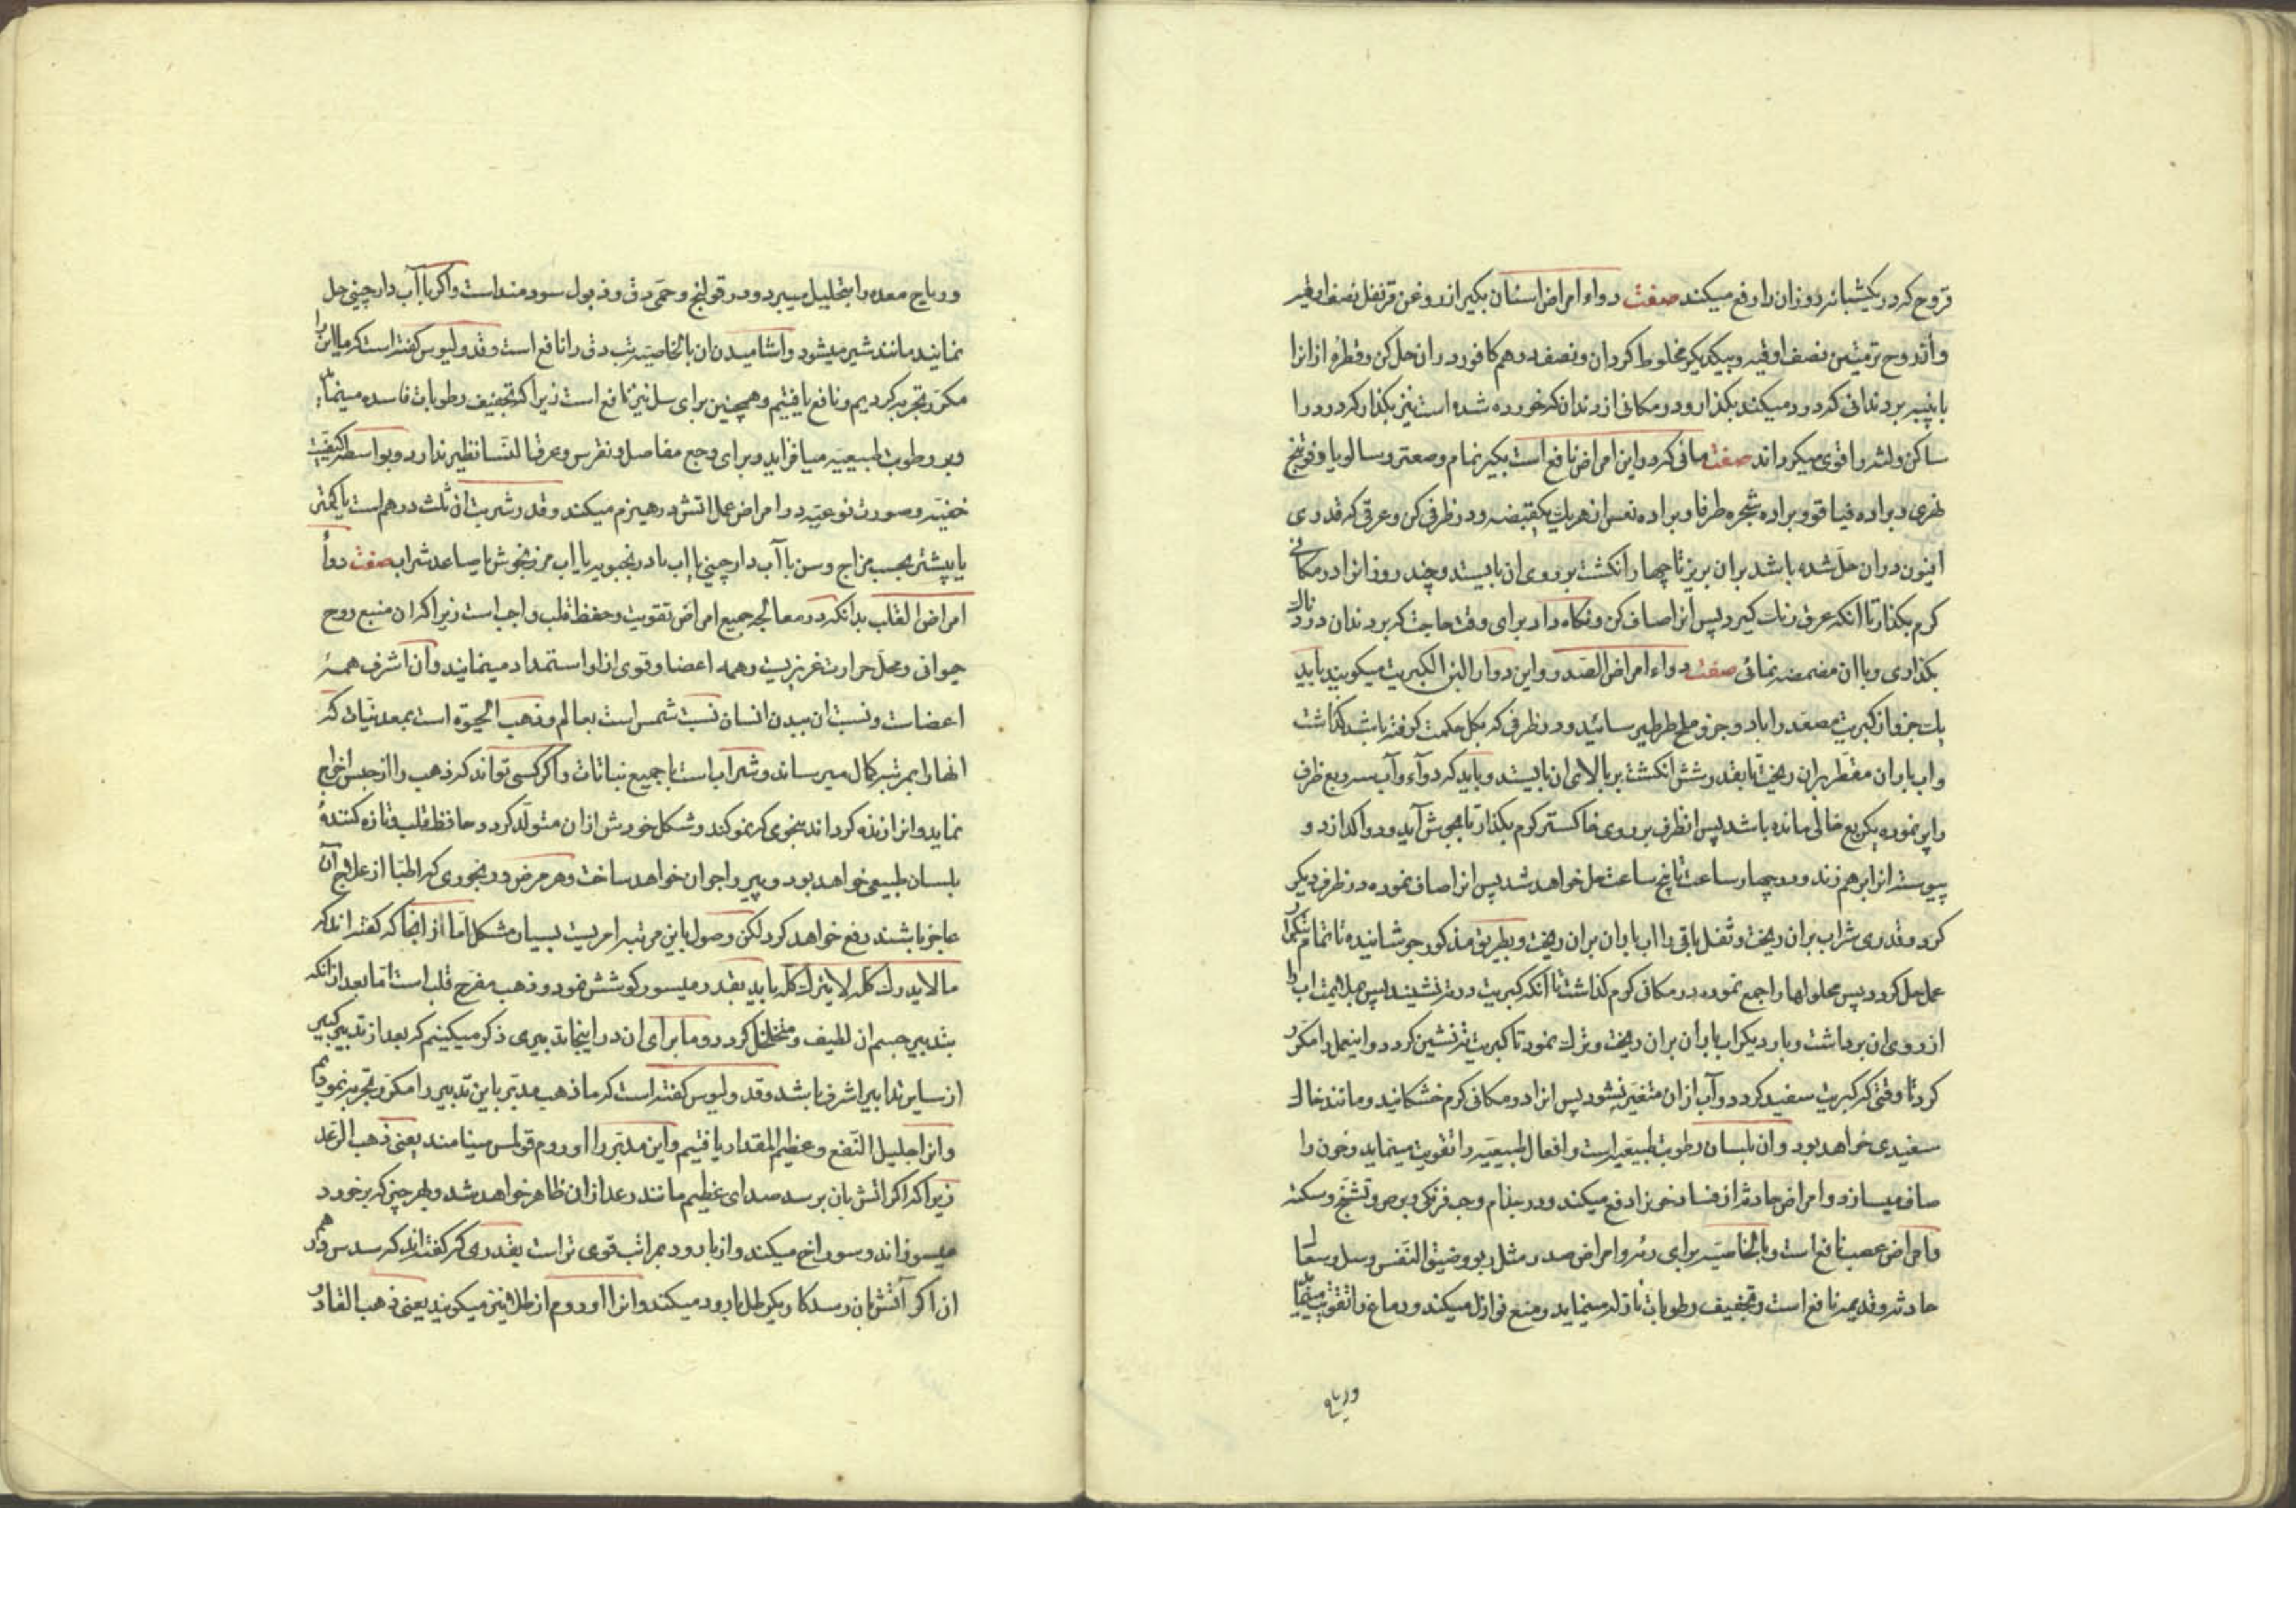 قروح که در یکشبانه روز ان را رفع میکند صفت دواء امراض اسنان بکیر از روغن قرنفل نصف اوقیه
و از روح ترمنتین نصف اوقیه و بیکدیکر مخلوط کردان و نصف درهم کافور در ان حل کن و قطره از انرا
با پنبه بر دندانی که درد میکند بکذار و در مکانی از دندان که خورده شده است نیز بکذار که درد را
ساکن و لثه را قوی میکرداند صفت مافی که در این امراض نافع است بکیر نمام و صعتر و سالویا و فوتنج
نهری و براده فیاقو و براده شجره طرفا و براده نعس از هریک یکقبضه و در ظرفی کن و عرقی که قدری
افیون در ان حل شده باشد بران بریز تا چهار انکشت بر روی ان بایستد و چند روز انرا در مکانی
کرم بکذار تا انکه عرق رنک کیرد پس انرا صاف کن و نکاه دار برای وقت حاجت که بر دندان دردناک
بکذاری و با ان مضمضه نمائی صفت دواء امراض الصدر و این دوا را لبن الکبریت میکویند باید
یک جزو از کبریت مصعد را با دو جزو ملح طرطیر سائید و در ظرفی که بکل حکمت کرفته باشد کذاشت
و اب باران مقطر بران ریخت تا بقدر شش انکشت بر بالای ان بایستد و باید که دوآء و آب سه ربع ظرف
را پر نموده یکربع خالی مانده باشد پس انظرف بر روی خاکستر کرم بکذار تا بجوش آید و دوا کدازد و
پیوسته انرا برهم زند و در چهار ساعت تا پنج ساعت حل خواهد شد پس انرا صاف نموده در ظرف دیکر
کرد و قدری شراب بران ریخت و ثفل باقی را اب باران بران ریخت و بطریق مذکور جوشانیده تا تمام
عمل حل کردد پس محلولها را جمع نموده در مکان کرم کذاشت تا انکه کبریت در ته نشیند پس بملایمت اب را
از روی ان برداشت و بار دیکر اب باران بران ریخت و ترک نمود تا کبریت ته نشین کردد و اینعمل را مکرر
کرد تا وقتی که کبریت سفید کردد و آب از ان متغیر نشود پس انرا در مکان کرم خشکانید و مانند خاک
سفیدی خواهد بود و ان بلسان رطوبت طبیعیه است و افعال طبیعیه را تقویت مینماید و خون را
صاف میسازد و امراض حادثه از فساد خونرا دفع میکند و در جذام و جب فرنکی و برص و تشنج و سکته
و امراض عصب نافع است و بالخاصیه برای ریه و امراض صدر مثل ربو و ضیق النفس و سل و سعال
حادثه و قدیمه نافع است و تجفیف رطوبات نازله مینماید و منع نوازل میکند و دماغ را تقویت مینماید
و ریاح
و ریاح معده را بتحلیل میبرد و در قولنج و حمی دق و ذبول سودمند است و اکر با آب دارچینی حل
نمایند مانند شیر میشود و اشامیدن ان بالخاصیه تب دق را نافع است و قدولیوس کفته است که ما این را
مکرر تجربه کردیم و نافع یافتیم و همچنین برای سل نیز نافع است زیرا که تجفیف رطوبات فاسده مینماید
و بر رطوبت طبیعیه میافزاید و برای وجع مفاصل و نقرس و عرق النسا نظیر ندارد و بواسطه کیفیت
خفیه و صورت نوعیه در امراض عمل اتش در هیزم میکند و قدر شربت ان ثلث درهم است یا کمتر
یا پیشتر بحسب مزاج و سن با آب دارچینی یا اب بادرنجبویه یا اب مرزنجوش یا صاعد شراب صفت دواء
امراض القلب بدانکه در معالجه جمیع امراض تقویت و حفظ قلب واجب است زیرا که ان منبع روح
حیوانی و محل حرارت غریزیست و همه اعضا و قوی از او استمداد مینمایند و ان اشرف همهٔ
اعضات و نسبت ان ببدن انسان نسبت شمس است بعالم و ذهب الحیوة است بمعدنیات که
انها را بمرتبه کمال میرساند و شراب است با جمیع نباتات و اکر کسی تواند که ذهب را از حبس اخراج
نماید و انرا زنده کرداند بنحوی که نمو کند و شکل خودش از ان متولد کردد حافظ قلب و تازه کنندهٔ
بلسان طبیعی خواهد بود و پیر را جوان خواهد ساخت و هر مرض و رنجوری که اطبا از علاج آن
عاجز باشند رفع خواهد کرد لکن وصول باین مرتبه امریست بسیار مشکل اما از انجا که کفته اند که
ما لا یدرک کله لا یترک کله باید بقدر میسور کوشش نمود و ذهب مفرح قلب است اما بعد از انکه
بتدبیر جسم ان لطیف و متخلخل کردد و ما برای ان در اینجا تدبیری ذکر میکنیم که بعد از تدبیر کبیر
از سایر تدابیر اشرف باشد و قدولیوس کفته است که ما ذهب مدبر باین تدبیر را مکرر تجربه نمودیم
و انرا جلیل النفع و عظیم المقدار یافتیم و این مدبر را اوروم قولمس مینامند یعنی ذهب الرعد
زیرا که اکر اتش بان برسد صدای عظیم مانند رعد از ان ظاهر خواهد شد و بهر چیز که برخورد
میسوزاند و سوراخ میکند و از بارود بمراتب قوی تر است بقدری که کفته اند که سدس درهم
ان اکر آتش بان رسد کار یکرطل بارود میکند و انرا اوروم ازطلا نیز میکویند یعنی ذهب القادر